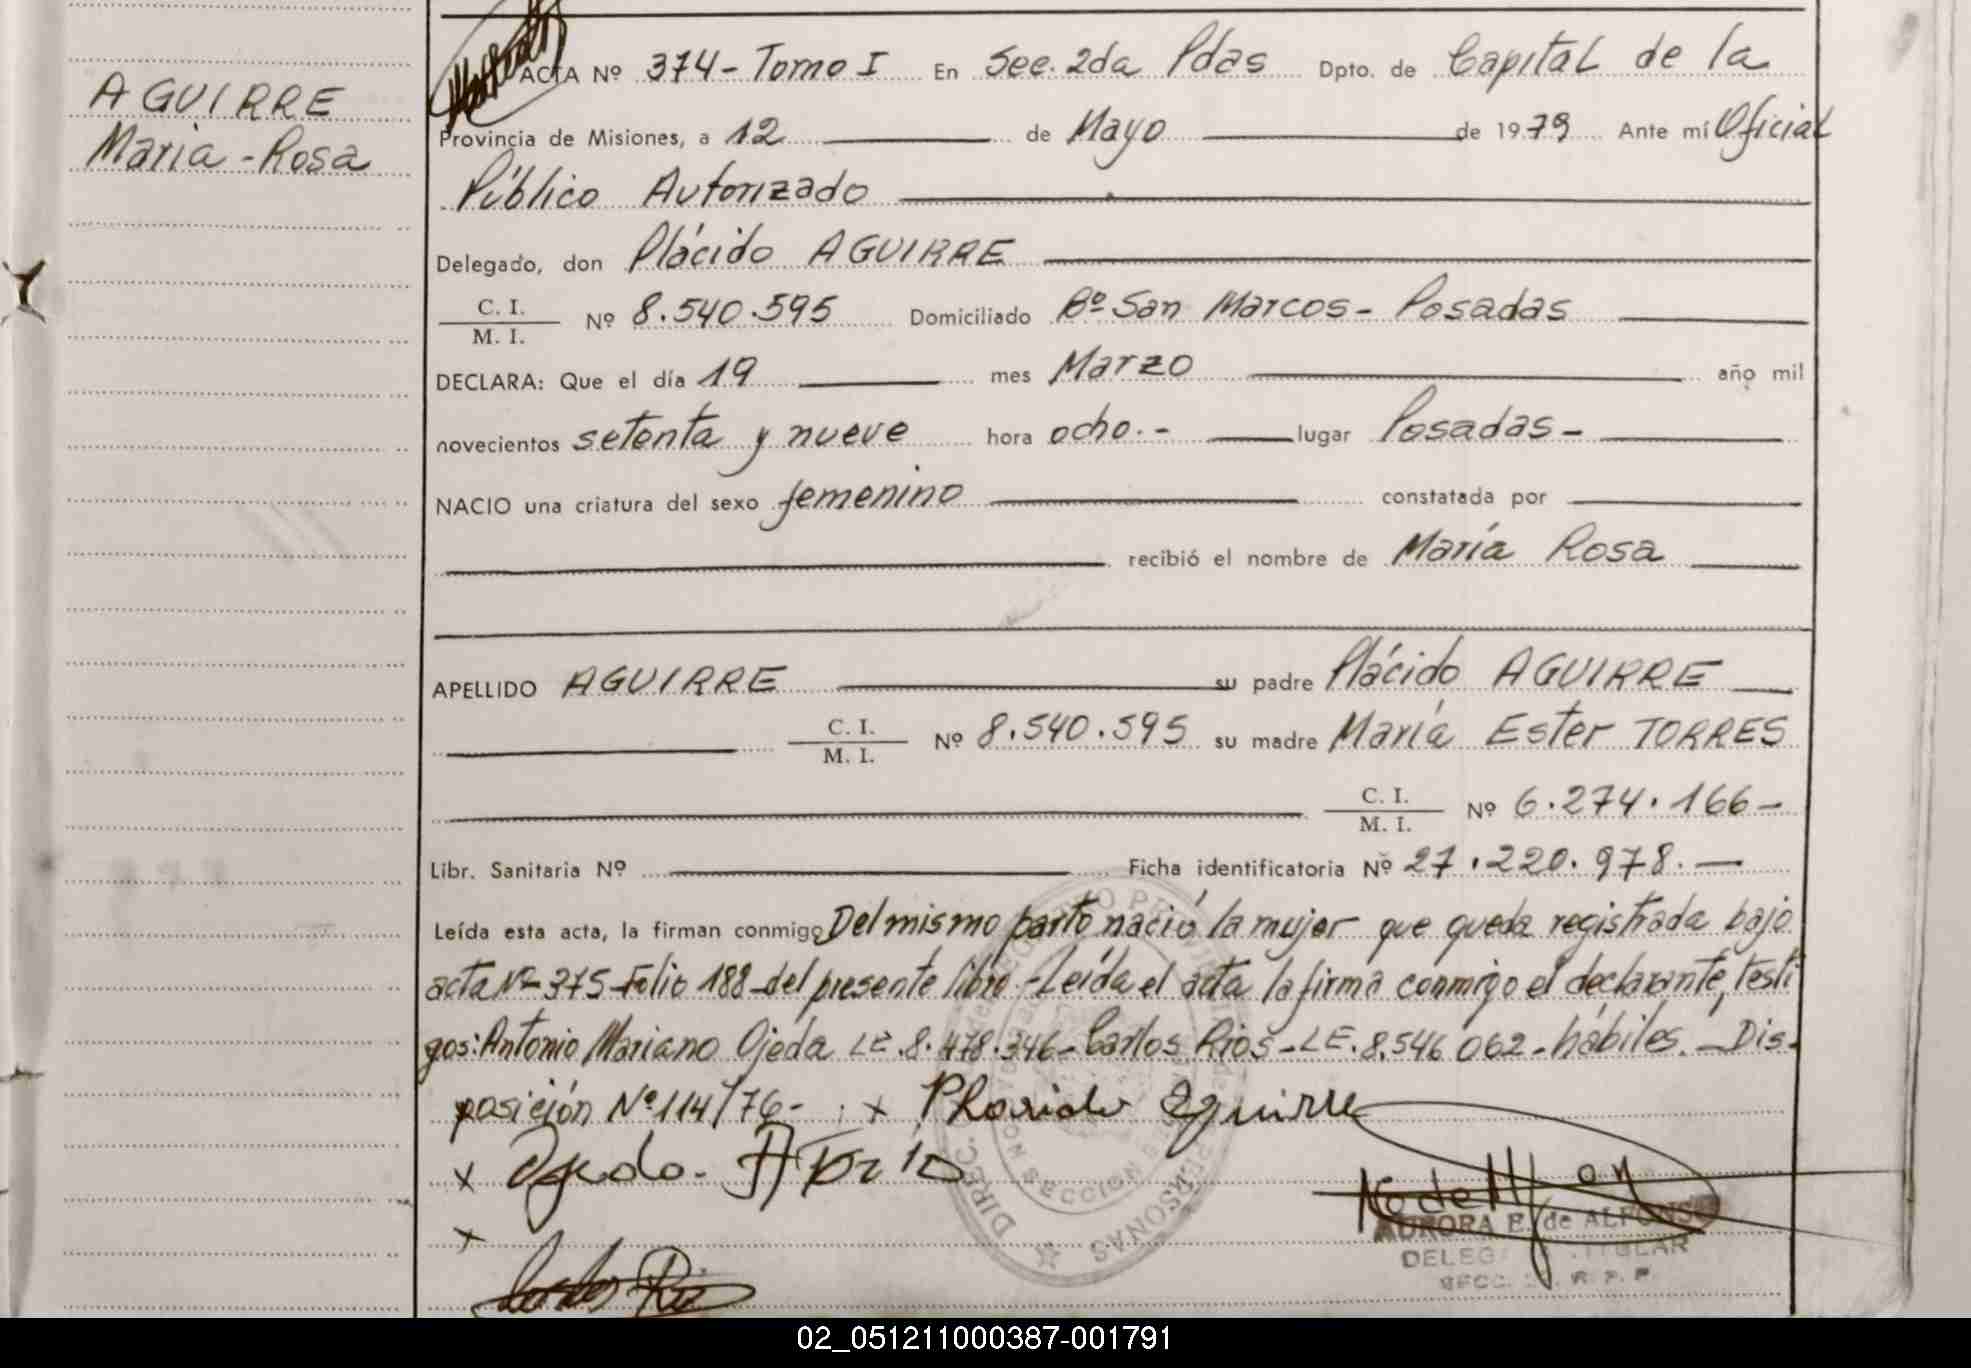 AGUIRRE
Maria - Rosa
ACTA Nº 374 - Tomo I En Sec. 2da Pdas Dpto. de Capital de la
Provincia de Misiones, a 12 de Mayo de 1979 Ante mí Oficial
Público Autorizado
Delegado, don Plácido AGUIRRE
C. I.
M. I. Nº 8.540.595 Domiciliado Bº San Marcos - Posadas
DECLARA: Que el día 19 mes Marzo año mil
novecientos setenta y nueve hora ocho.- lugar Posadas -
NACIO una criatura del sexo femenino constatada por
recibió el nombre de María Rosa
APELLIDO AGUIRRE su padre Plácido AGUIRRE
C. I.
M. I. Nº 8.540.595 su madre María Ester TORRES
C. I.
M. I. Nº 6.274.166 -
Libr. Sanitaria Nº Ficha identificatoria Nº 27.220.978. -
Leída esta acta, la firman conmigo Del mismo parto nació la mujer que queda registrada bajo
acta Nº 375 - Folio 188 - del presente libro - Leída el acta la firma conmigo el declarante, testi
gos: Antonio Mariano Ojeda LE. 8.478.346 - Carlos Rios - LE. 8.546 062 - hábiles. - Dis-
posición Nº 114/76 - x Plasido Aguirre
x Ojeda
x
Carlos Rio
DIREC. PERSONAS
SECCION
AURORA E. de ALFONSO
DELEG TITULAR
SECC. R. P. P.
02_051211000387-001791